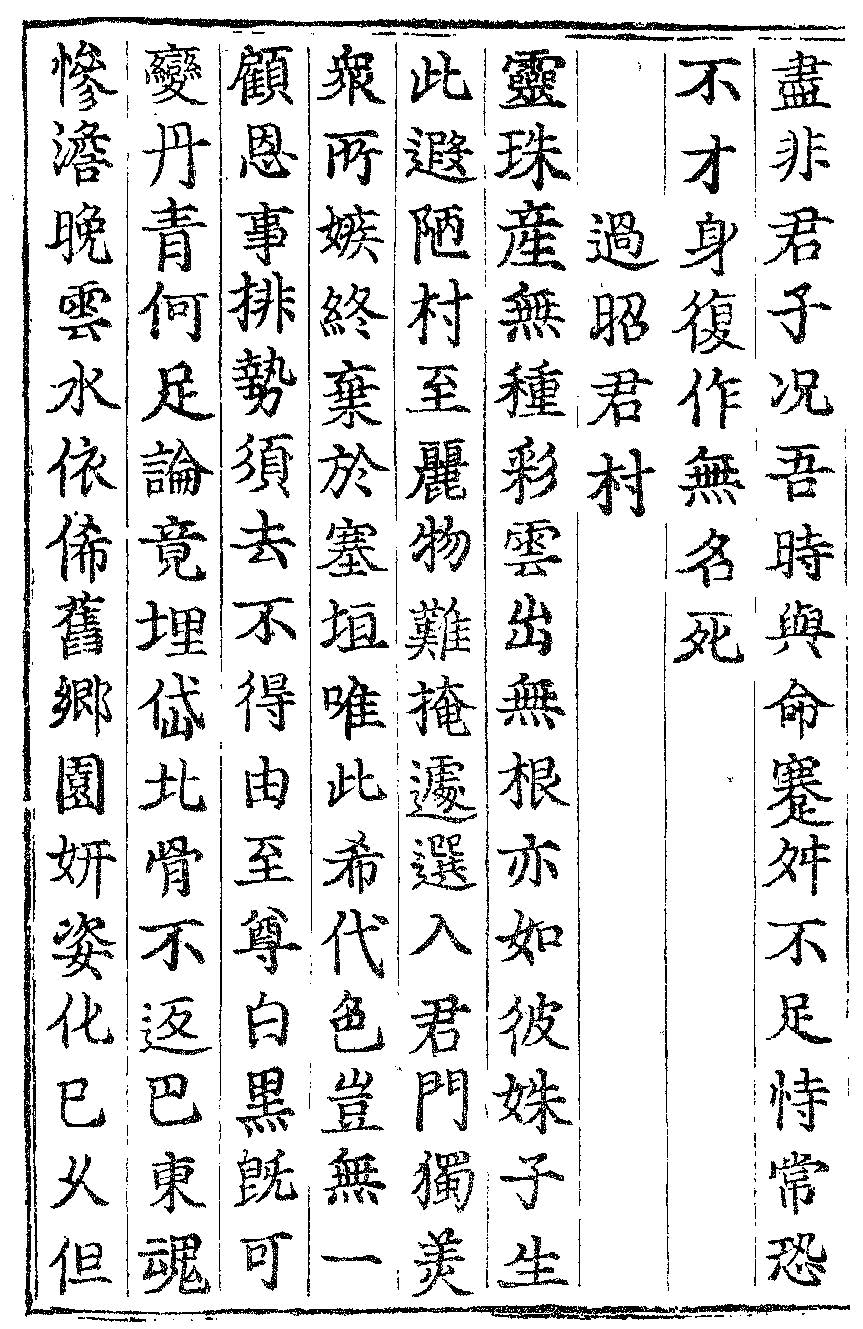 盡非君子况吾時與命蹇舛不足恃常恐
不才身復作無名死
過昭君村
靈珠産無種彩雲出無根亦如彼姝子生
此遐陋村至麗物難掩遽選入君門獨美
衆所嫉終棄於塞垣唯此希代色豈無一
顧恩事排勢須去不得由至尊白黒旣可
變丹青何足論竟埋岱北骨不返巴東魂
慘澹晩雲水依俙舊鄉園妍姿化已乆但